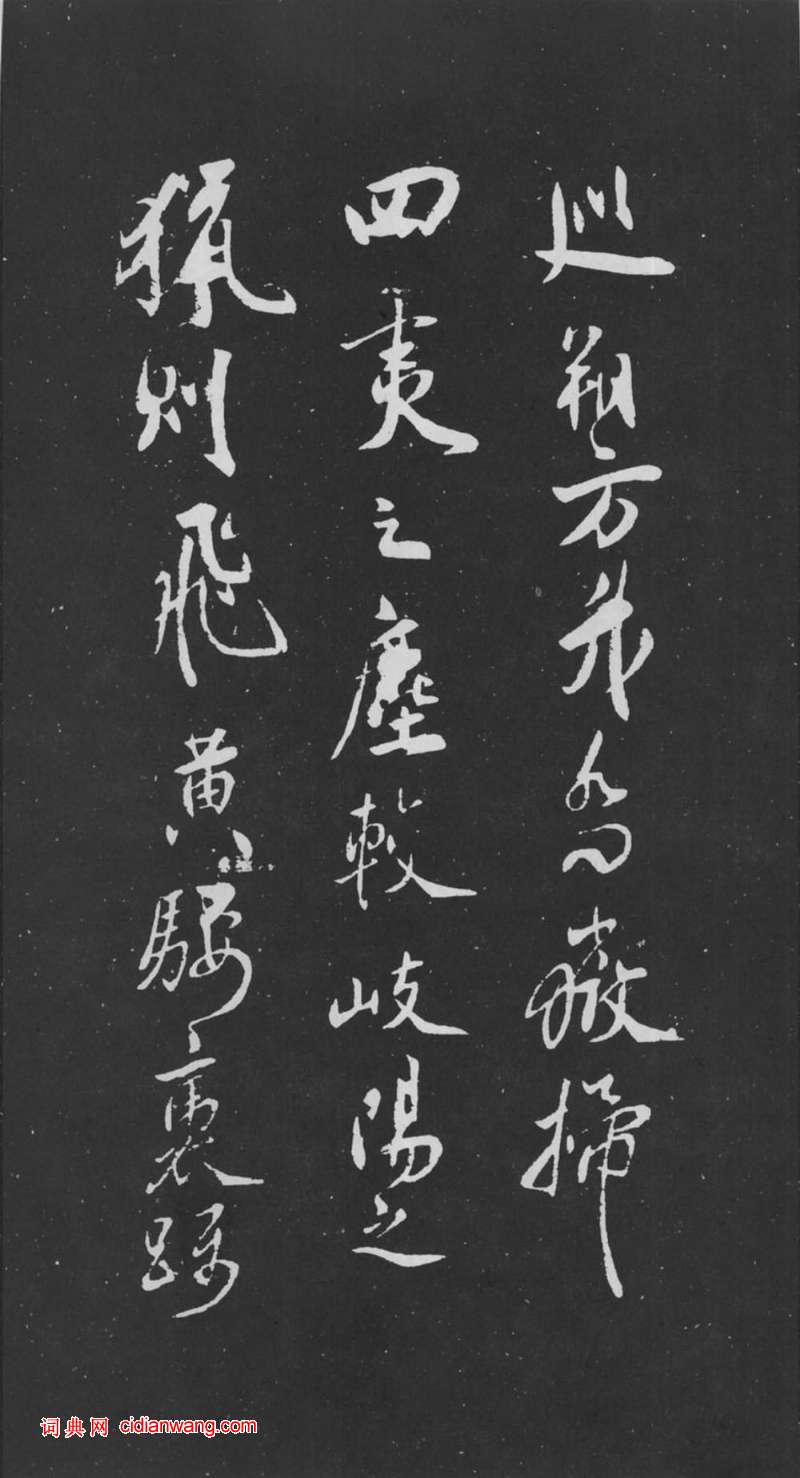 巡朔方為掃
四夷之塵較岐陽之
獵則飛黃騕褭
词典网 cidianwang.com